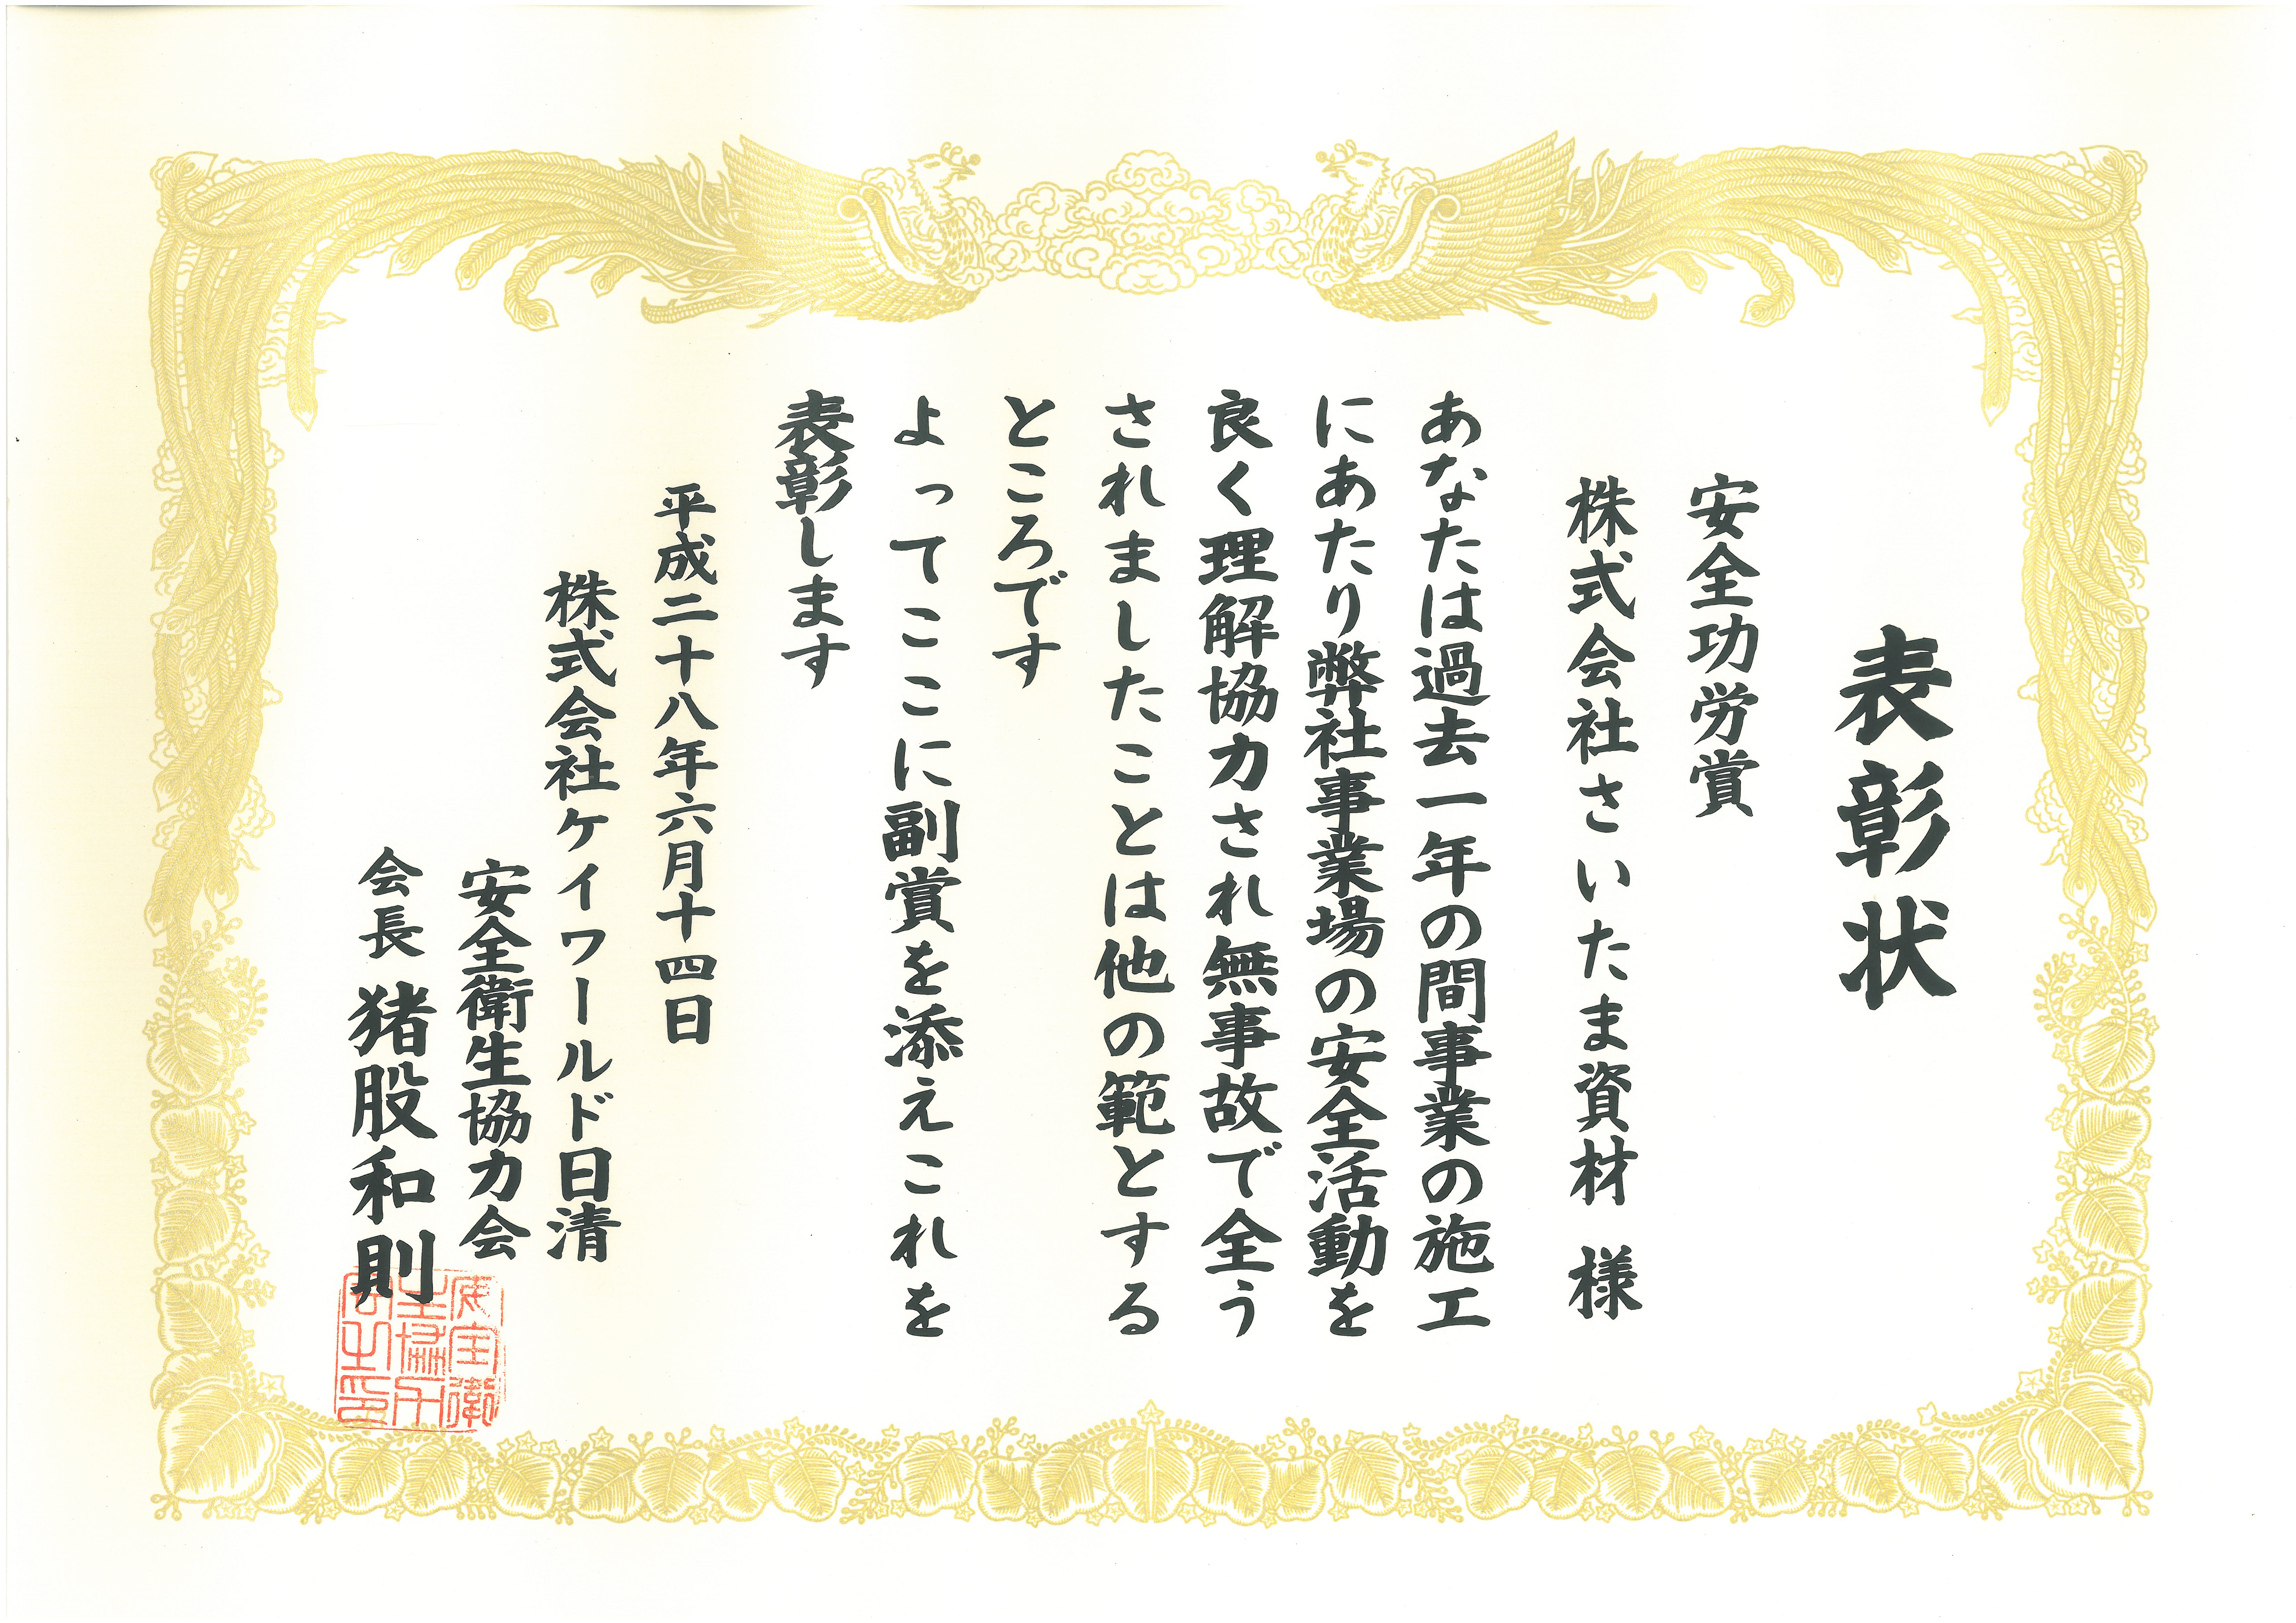 表彰状
安全功労賞
株式会社さいたま資材 様
あなたは過去一年の間事業の施工
にあたり弊社事業場の安全活動を
良く理解協力され無事故で全う
されましたことは他の範とする
ところです
よってここに副賞を添えこれを
表彰します
平成二十八年六月十四日
株式会社ケイワールド日清
安全衛生協力会
会長 猪股和則
安全衛
生協力
会之印